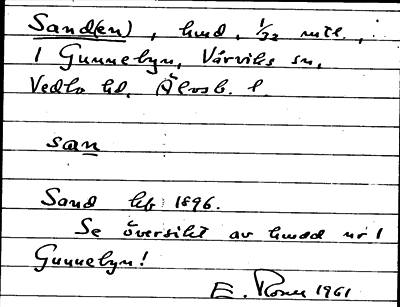 Sand(en), hmd, 1/32 mtl.,
1 Gunnebyn, Värviks sn,
Vedbo hd, Älvsb. l.
san
Sand hfs 1896.
Se översikt av hmdd nr 1
Gunnebyn!
E. 1961